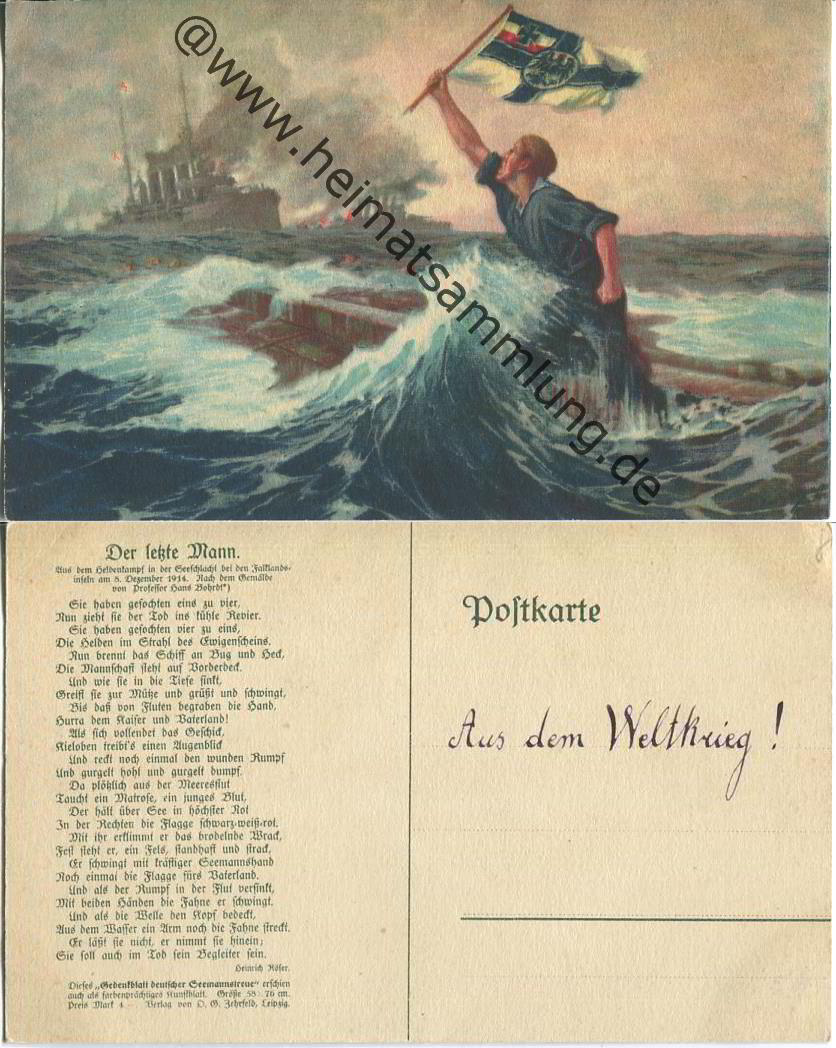 @www.heimatsammlung.de
Der letzte Mann.
Aus dem Heldenkampf in der Seeschlacht bei den Falklands-
inseln am 8. Dezember 1914. Nach dem Gemälde
von Professor Hans Bohrdt*)
Sie haben gefochten eins zu vier,
Nun zieht sie der Tod ins kühle Revier.
Sie haben gefochten vier zu eins,
Die Helden im Strahl des Ewigenscheins.
Nun brennt das Schiff an Bug und Heck,
Die Mannschaft steht auf Vorderdeck.
Und wie sie in die Tiefe sinkt,
Greift sie zur Mütze und grüßt und schwingt,
Bis daß von Fluten begraben die Hand,
Hurra dem Kaiser und Vaterland!
Als sich vollendet das Geschick,
Kieloben treibt's einen Augenblick
Und reckt noch einmal den wunden Rumpf
Und gurgelt hohl und gurgelt dumpf.
Da plötzlich aus der Meeresflut
Taucht ein Matrose, ein junges Blut,
Der hält über See in höchster Not
In der Rechten die Flagge schwarz-weiß-rot.
Mit ihr erklimmt er das brodelnde Wrack,
Fest steht er, ein Fels, standhaft und strack,
Er schwingt mit kräftiger Seemannshand
Noch einmal die Flagge fürs Vaterland.
Und als der Rumpf in der Flut versinkt,
Mit beiden Händen die Fahne er schwingt.
Und als die Welle den Kopf bedeckt,
Aus dem Wasser ein Arm noch die Fahne streckt.
Er läßt sie nicht, er nimmt sie hinein;
Sie soll auch im Tod sein Begleiter sein.
Heinrich Röser.
Dieses „Gedenkblatt deutscher Seemannstreue" erschien
auch als farbenprächtiges Kunstblatt. Größe 58×76 cm.
Preis Mark 4.— Verlag von O. G. Zehrfeld, Leipzig.
Postkarte
Aus dem Weltkrieg!
8